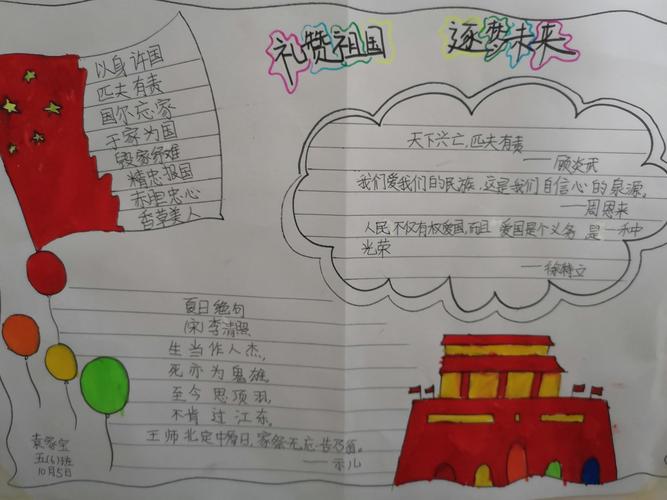 礼赞祖国 逐梦未来
以身许国
匹夫有责
国尔忘家
于家为国
毁家纾难
精忠报国
赤胆忠心
香草美人
天下兴亡,匹夫有责
——顾炎武
我们爱我们的民族,这是我们自信心的泉源,
——周恩来
人民不仅有权爱国,而且 爱国是个义务 是一种
光荣
——徐特立
夏日绝句
(宋)李清照
生当作人杰,
死亦为鬼雄,
至今思项羽,
不肯过江东,
王师北定中原日,家祭无忘告乃翁。
——示儿
五(6)班
10月5日